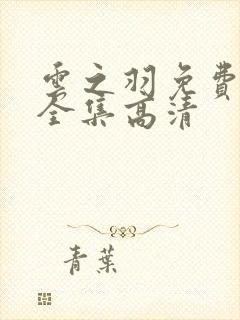 雲之羽免費
全集高清
青葉